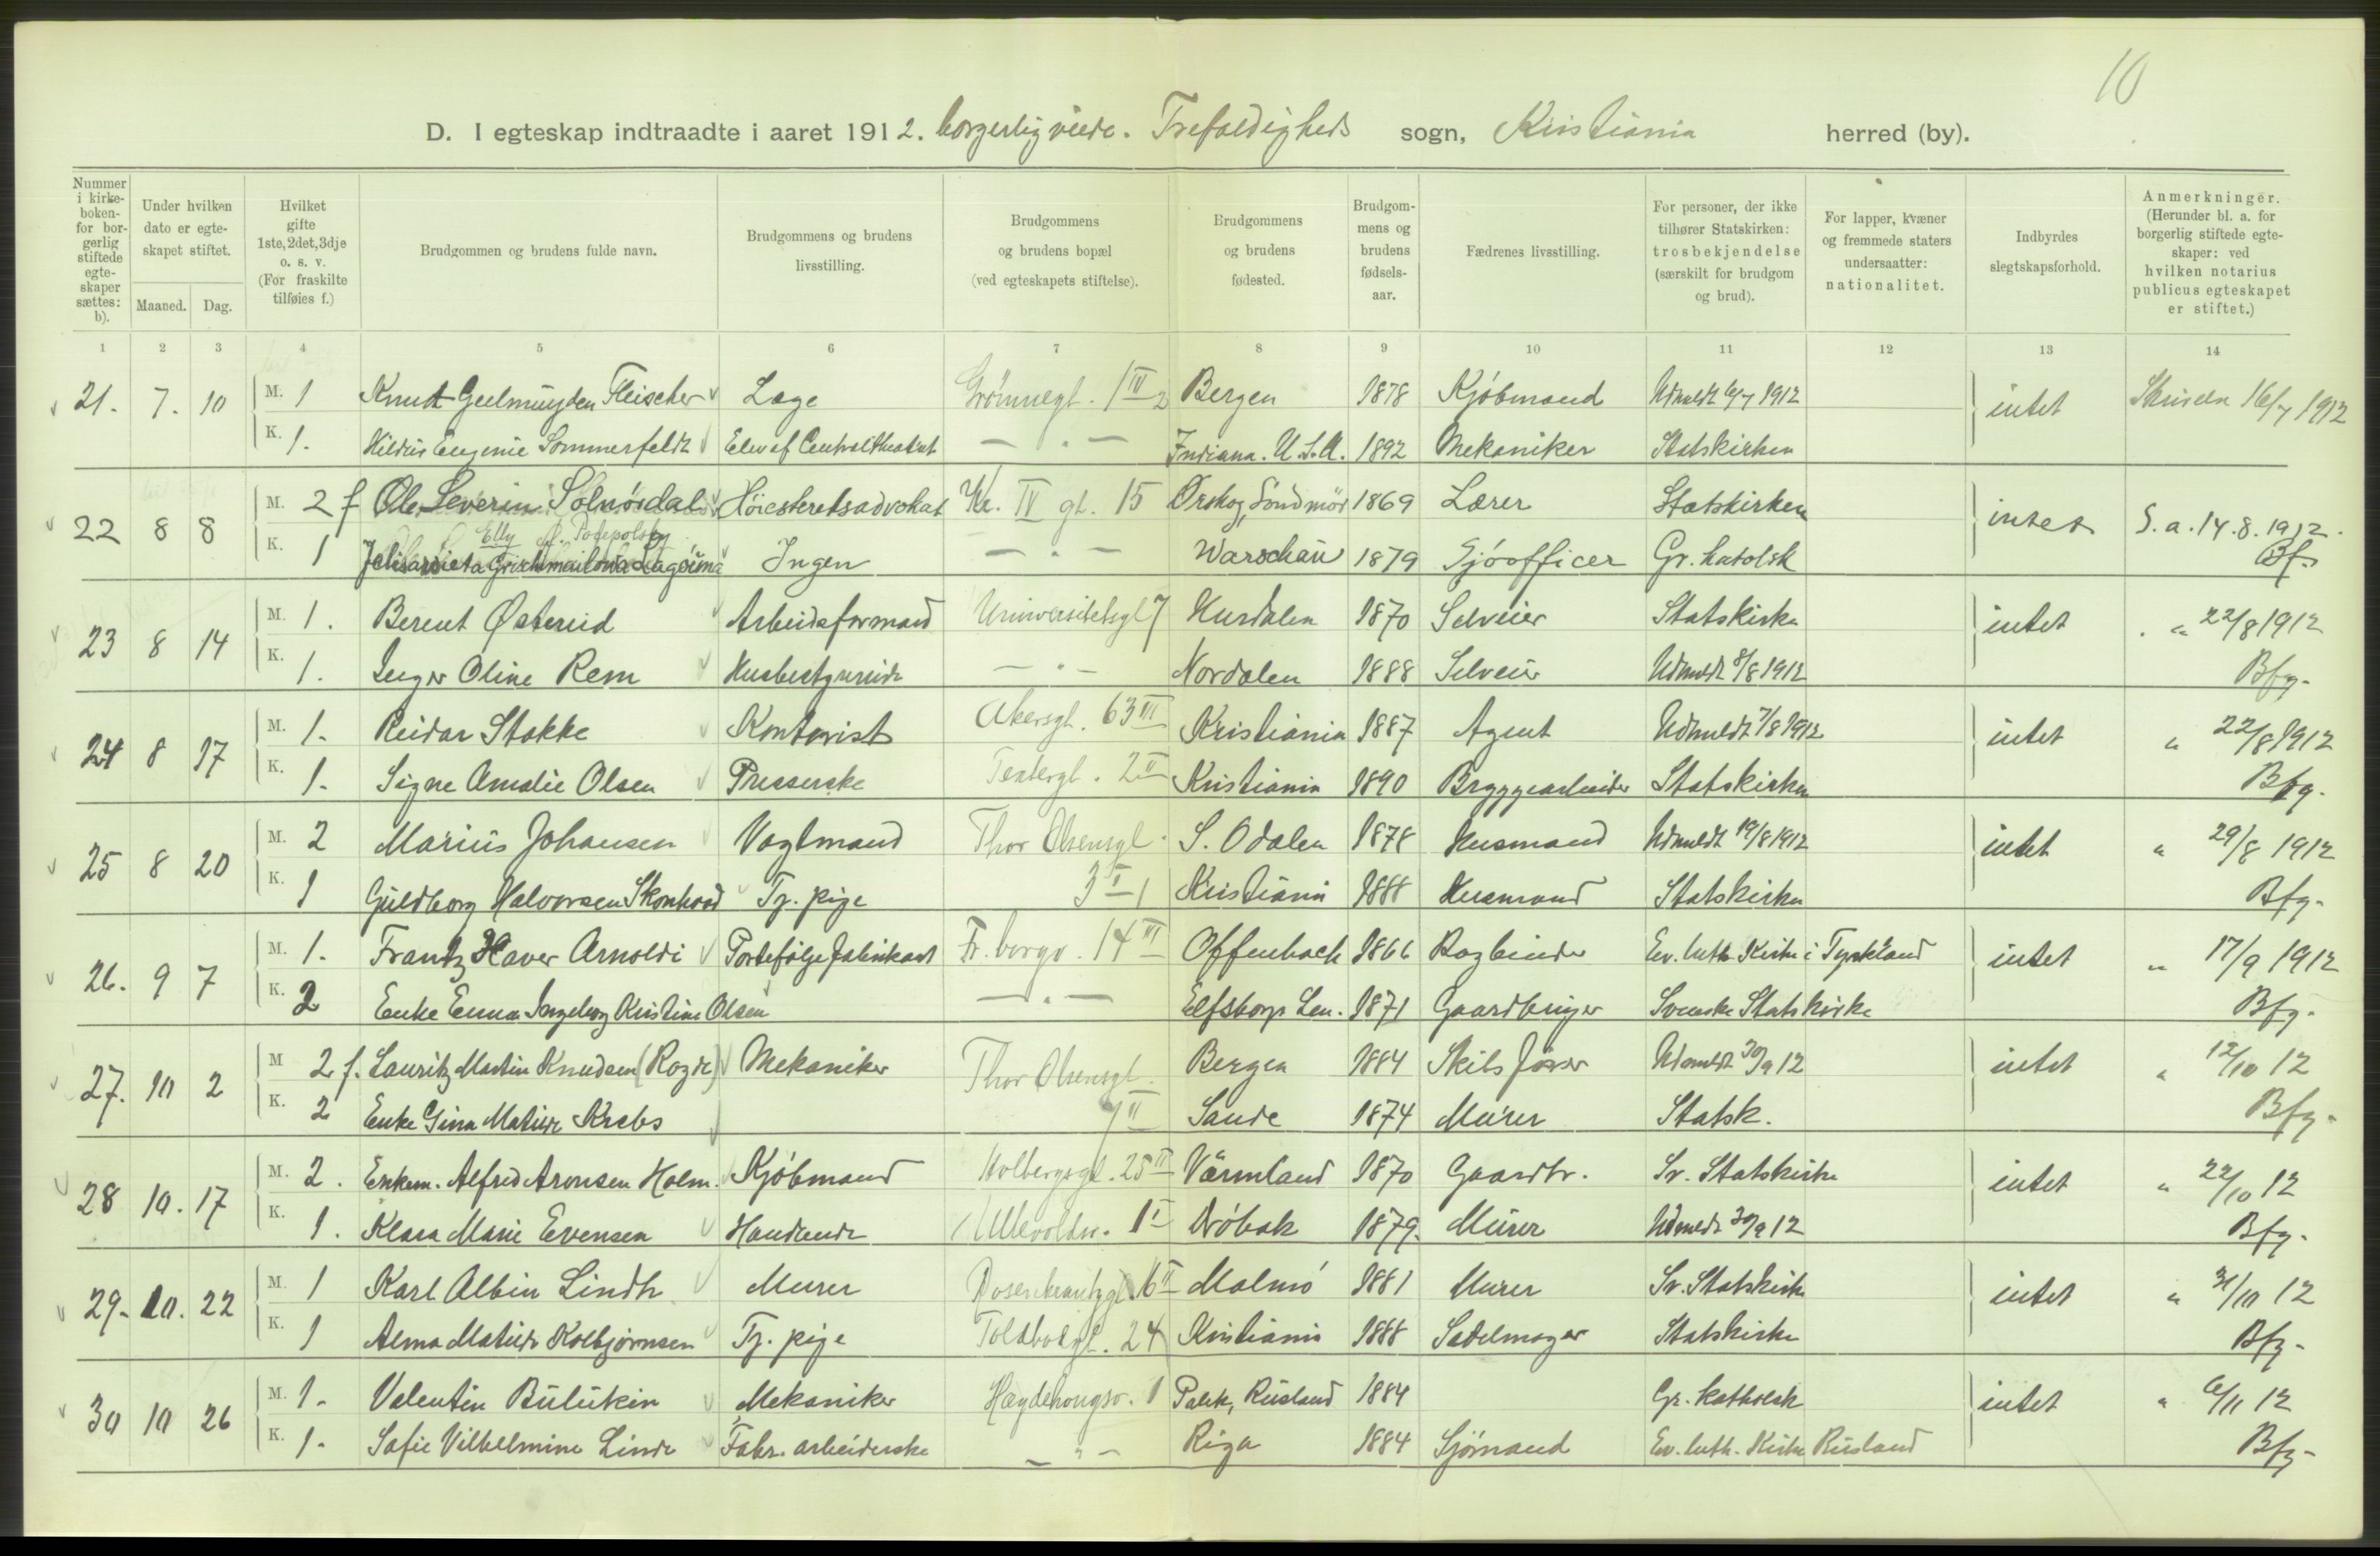 10
D. I egteskap indtraadte i aaret 1912. borgerlig viede. Trefoldigheds sogn, Kristiania herred (by).
Nummer i kirke-boken- for bor-gerlig stiftede egte-skaper sættes: b).
Under hvilken dato er egte-skapet stiftet.
Maaned. Dag.
Hvilket gifte 1ste, 2det, 3dje o. s. v. (For fraskilte tilføies f.)
Brudgommen og brudens fulde navn.
Brudgommens og brudens livsstilling.
Brudgommens og brudens bopæl (ved egteskapets stiftelse).
Brudgommens og brudens fødested.
Brudgom-mens og brudens fødsels-aar.
Fædrenes livsstilling.
For personer, der ikke tilhører Statskirken: trosbekjendelse (særskilt for brudgom og brud).
For lapper, kvæner og fremmede staters undersaatter: nationalitet.
Indbyrdes slegtskapsforhold.
Anmerkninger. (Herunder bl. a. for borgerlig stiftede egte-skaper: ved hvilken notarius publicus egteskapet er stiftet.)
1 2 3 4 5 6 7 8 9 10 11 12 13 14
21. 7. 10 M. 1 Knut Geelmuyden Fleischer Læge Grønnegt. 1 IV 2 Bergen 1878 Kjøbmand Udmeldt 6/7 1912 intet Skrivelse 16/7 1912
K. 1. Hildur Eugenie Sommerfeldt Elev af Centraltheatret — " — Indiana. U.S.A. 1892 Mekaniker Statskirken
22 8 8 M. 2 f Ole Severin Solnørdal Høiesteretsadvokat Kr. IV gt. 15 Ørskog, Søndmør 1869 Lærer Statskirken intet S. a. 14.8.1912. Bf.
Elly
K. 1 Jelisawieta Ingen — " — Warschau 1879 Sjøofficer Gr. katolsk
23 8 14 M. 1. Berent Østereid Arbeidsformand Universitetsgt 7 Hurdalen 1870 Selveier Statskirke intet " 22/8 1912
K. 1. Inger Oline Rem Husbestyrerinde — " — Nordalen 1888 Selveier Udmeldt 8/8 1912 Bfg.
24 8 17 M. 1. Reidar Stokke Kontorist Akersgt. 63 III Kristiania 1887 Agent Udmeldt 7/8 1912 intet " 22/8 1912
K. 1. Signe Amalie Olsen Presserske 2 II Kristiania 1890 Bryggearbeider Statskirken Bfg.
25 8 20 M. 2 Marius Johansen Vagtmand Thor Olsensgt. S. Odalen 1878 Husmand Udmeldt 19/8 1912 intet " 29/8 1912
K. 1 Guldborg Halvorsen Skonhood Tj. pige 3 I 1 Kristiania 1888 Husmand Statskirken Bfg.
26. 9 7 M. 1. Frantz Xaver Arnoldi Portefølgefabrikant Fr. borgv. 14 III Offenbach 1866 Bogbinder Ev. luth. Kirke i Tyskland intet " 17/9 1912
K. 2 Enke Emma Ingeborg Kristine Olsen — " — Elfsborgs Len. 1871 Gaardbruger Svenske Statskirke Bfg.
27. 10 2 M 2 f. Lauritz Martin Knudsen (Rogde) Mekaniker Thor Olsensgt. Bergen 1884 Skibsfører Udmeldt 30/9 12 intet " 12/10 12
K. 2 Enke Gina Matilde Krebs 7 II Sande 1874 Murer Statsk. Bfg.
28 10. 17 M. 2. Enkem. Alfred Aronsen Holm. Kjøbmand Holbergsgt. 25 II Värmland 1870 Gaardbr. Sv. Statskirke intet " 22/10 12
K. 1. Klara Marie Evensen Handlende Ullevoldsv. 1 I Drøbak 1879. Murer Udmeldt 30/9 12 Bfg.
29. 10. 22 M. 1 Karl Albin Lindh Murer Rosenkrantzgt. 16 II Malmø 1881 Murer Sv. Statskirke intet " 31/10 12
K. 1 Alma Matilde Kolbjørnsen Tj. pige Toldbodgt. 24 Kristiania 1888 Sadelmager Statskirke Bfg.
30 10 26 M. 1. Valentin Bulukin Mekaniker Hægdehougsv. 1 Rusland 1884 Gr. katholsk intet " 6/11 12
K. 1. Sofie Vilhelmine Linde Fabr. arbeiderske — " — Riga 1884 Sjømand Ev. luth. Kirke Rusland Bfg.